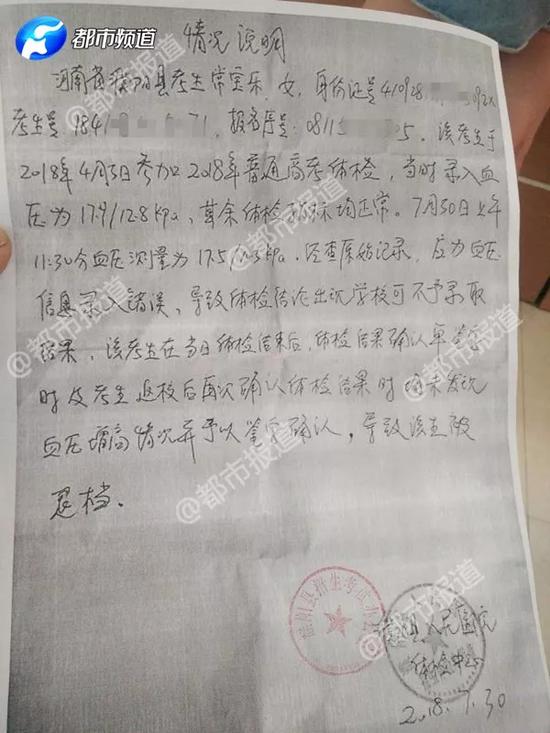 都市频道
情况说明
河南省濮阳县考生常宝乐 女，身份证号410928 092X
考生号1841 71，报名序号：08115 5。该考生于
2018年4月3日参加2018年普通高考体检，当时录入血
压为17.9/12.8kpa，其余体检指标均正常。7月30日上午
11:30分血压测量为17.5/ kpa。经查原始记录，应为血压
信息录入错误，导致体检结论出现学校可不予录取
结果，该考生在当日体检结束后，体检结果确认单签字
时及考生返校后再次确认体检结果时均未发现
血压增高情况并予以签字确认，导致该生被
退档。
@都市报道
@都市报道
@都市报道
@都市报道
@都市报道
濮阳县招生考试办公室
濮阳县人民医院
体检中心
2018.7.30